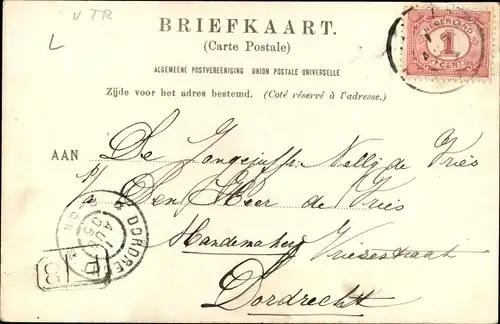 V TR
L
BRIEFKAART.
(Carte Postale)
ALGEMEENE POSTVEREENIGING UNION POSTALE UNIVERSELLE
Zijde voor het adres bestemd. (Coté réservé à l'adresse.)
NEDERLAND
1
CENT
AAN De Jongejuffr. Nelly de Vries
p/a Den Heer de Vries
Handemakers Vriesestraat
Dordrecht
DORDRE
AUG
05
3